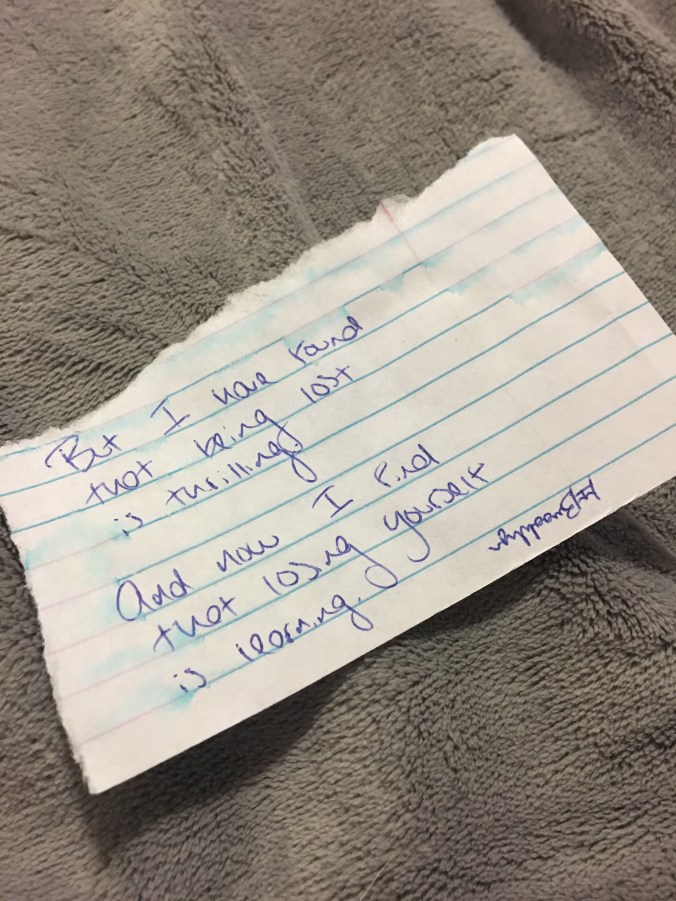 But I have found
that being lost
is thrilling.
And now I find
that losing yourself
is learning.
#Brooklyn